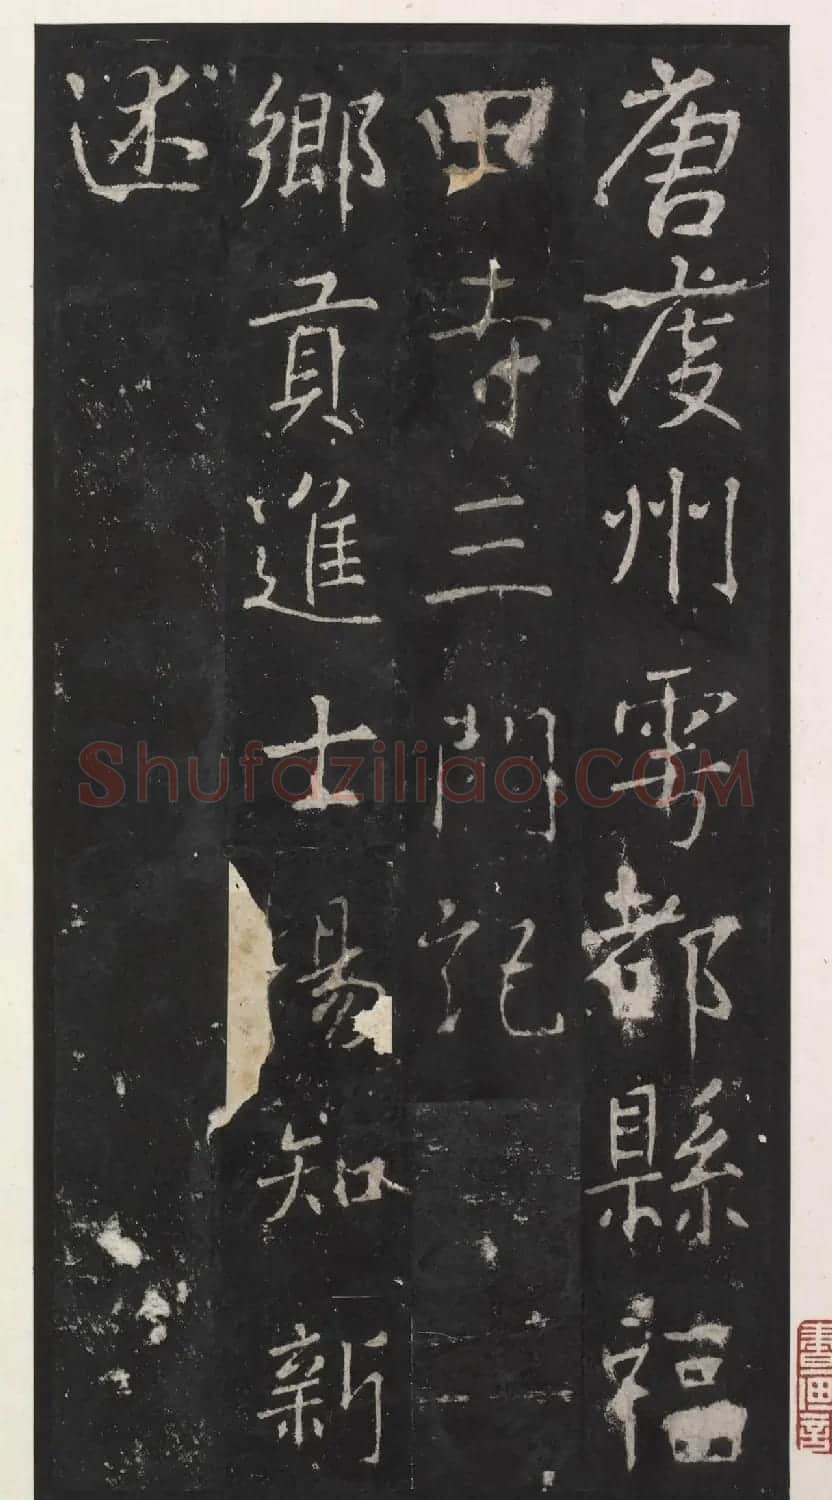 唐虔州雩都縣福
田寺三門記
鄉貢進士楊知新
述
Shufaziliao.COM